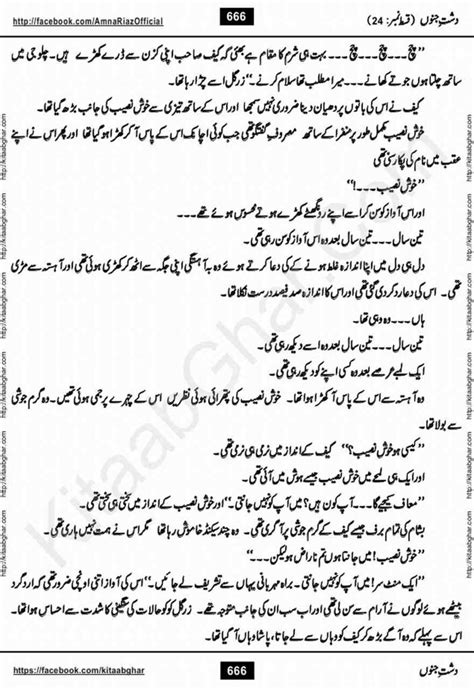 http://facebook.com/AmnaRiazOfficial 666 دشتِ جنوں (قسط نمبر: 24)
’’چچ۔۔۔چچ۔۔۔ چچ۔۔۔ بہت ہی شرم کا مقام ہے بھئی کہ کیف صاحب اپنی کزن سے ڈرے کھڑے ہیں۔ چلو جی میں
ساتھ چلتا ہوں آپ کے۔۔۔ میرا مطلب تھا سلام کرنے۔‘‘ زرگل اسے چڑا رہا تھا۔
کیف نے اس کی باتوں پر دھیان دینا ضروری نہیں سمجھا اور اس کے ساتھ تیزی سے خوش نصیب کی جانب بڑھ گیا تھا۔
خوش نصیب مکمل طور پر منفرا کے ساتھ مصروفِ گفتگو تھی جب کوئی اچانک اس کے پاس آ کر کھڑا ہو گیا تھا اور پھر اس نے اپنے
عقب میں نام کی پکار سنی تھی
’’خوش نصیب۔۔۔!‘‘
اور اس آواز کو سن کر اسے اپنے رونگٹے کھڑے ہوتے محسوس ہوئے تھے۔۔۔
تین سال۔۔۔ تین سال بعد وہ اس آواز کو سن رہی تھی۔
دل ہی دل میں اپنا اندازہ غلط ہونے کے کی دعا کرتے ہوئے وہ بہ آہستگی اپنی جگہ سے اٹھ کر کھڑی ہوئی تھی اور آہستہ سے مڑی
تھی۔ اس کی دعا رد کر دی گئی تھی اور اس کا اندازہ صد فیصد درست نکلا تھا۔
ہاں۔۔۔ وہ وہی تھا۔
تین سال۔۔۔ تین سال بعد وہ اسے دیکھ رہی تھی۔
ایک لمبے عرصے بعد وہ کسی اپنے کو دیکھ رہی تھی۔
وہ آہستہ سے اس کے پاس آ کھڑا ہوا تھا۔ خوش نصیب کی پتھرائی ہوئی نظریں اس کے چہرے پر جمی ہوئی تھیں۔ وہ گرم جوشی
سے بولا تھا۔
’’کیسی ہو خوش نصیب؟‘‘ کیف کے انداز میں نرمی ہی نرمی تھی۔
اور ایک ہی لمحے میں خوش نصیب جیسے ہوش میں آئی تھی۔
’’معاف کیجیے گا۔۔۔ آپ کون ہیں؟ میں آپ کو نہیں جانتی۔‘‘ اور خوش نصیب کے انداز میں سختی ہی سختی تھی۔
بشام کی تمام تر برف جیسے کیف کے گرم جوشی پر آ گری تھی۔ وہ چند سیکنڈ خاموش رہا تھا مگر اس کی مسکراہٹ نہیں ہاری تھی۔
’’خوش نصیب! میں جانتا ہوں تم ناراض ہو لیکن۔۔۔‘‘
’’ایک منٹ سر! میں آپ کو نہیں جانتی۔ براہ مہربانی یہاں سے تشریف لے جائیں۔‘‘ اس کی آواز اتنی اونچی ضرور تھی کہ ارد گرد
بیٹھے ہوئے لوگوں نے آرام سے سن لی تھی اور اب سب ان کی جانب متوجہ تھے۔ زرگل کو حالات کی سنگینی کا شدت سے احساس ہوا تھا۔
اس سے پہلے کہ وہ آگے بڑھ کر کیف کو وہاں سے لے جاتا، پاشا وہاں آ گیا تھا۔
https://facebook.com/kitaabghar 666 دشتِ جنوں
http://kitaabghar.com
KitaabGhar.Com